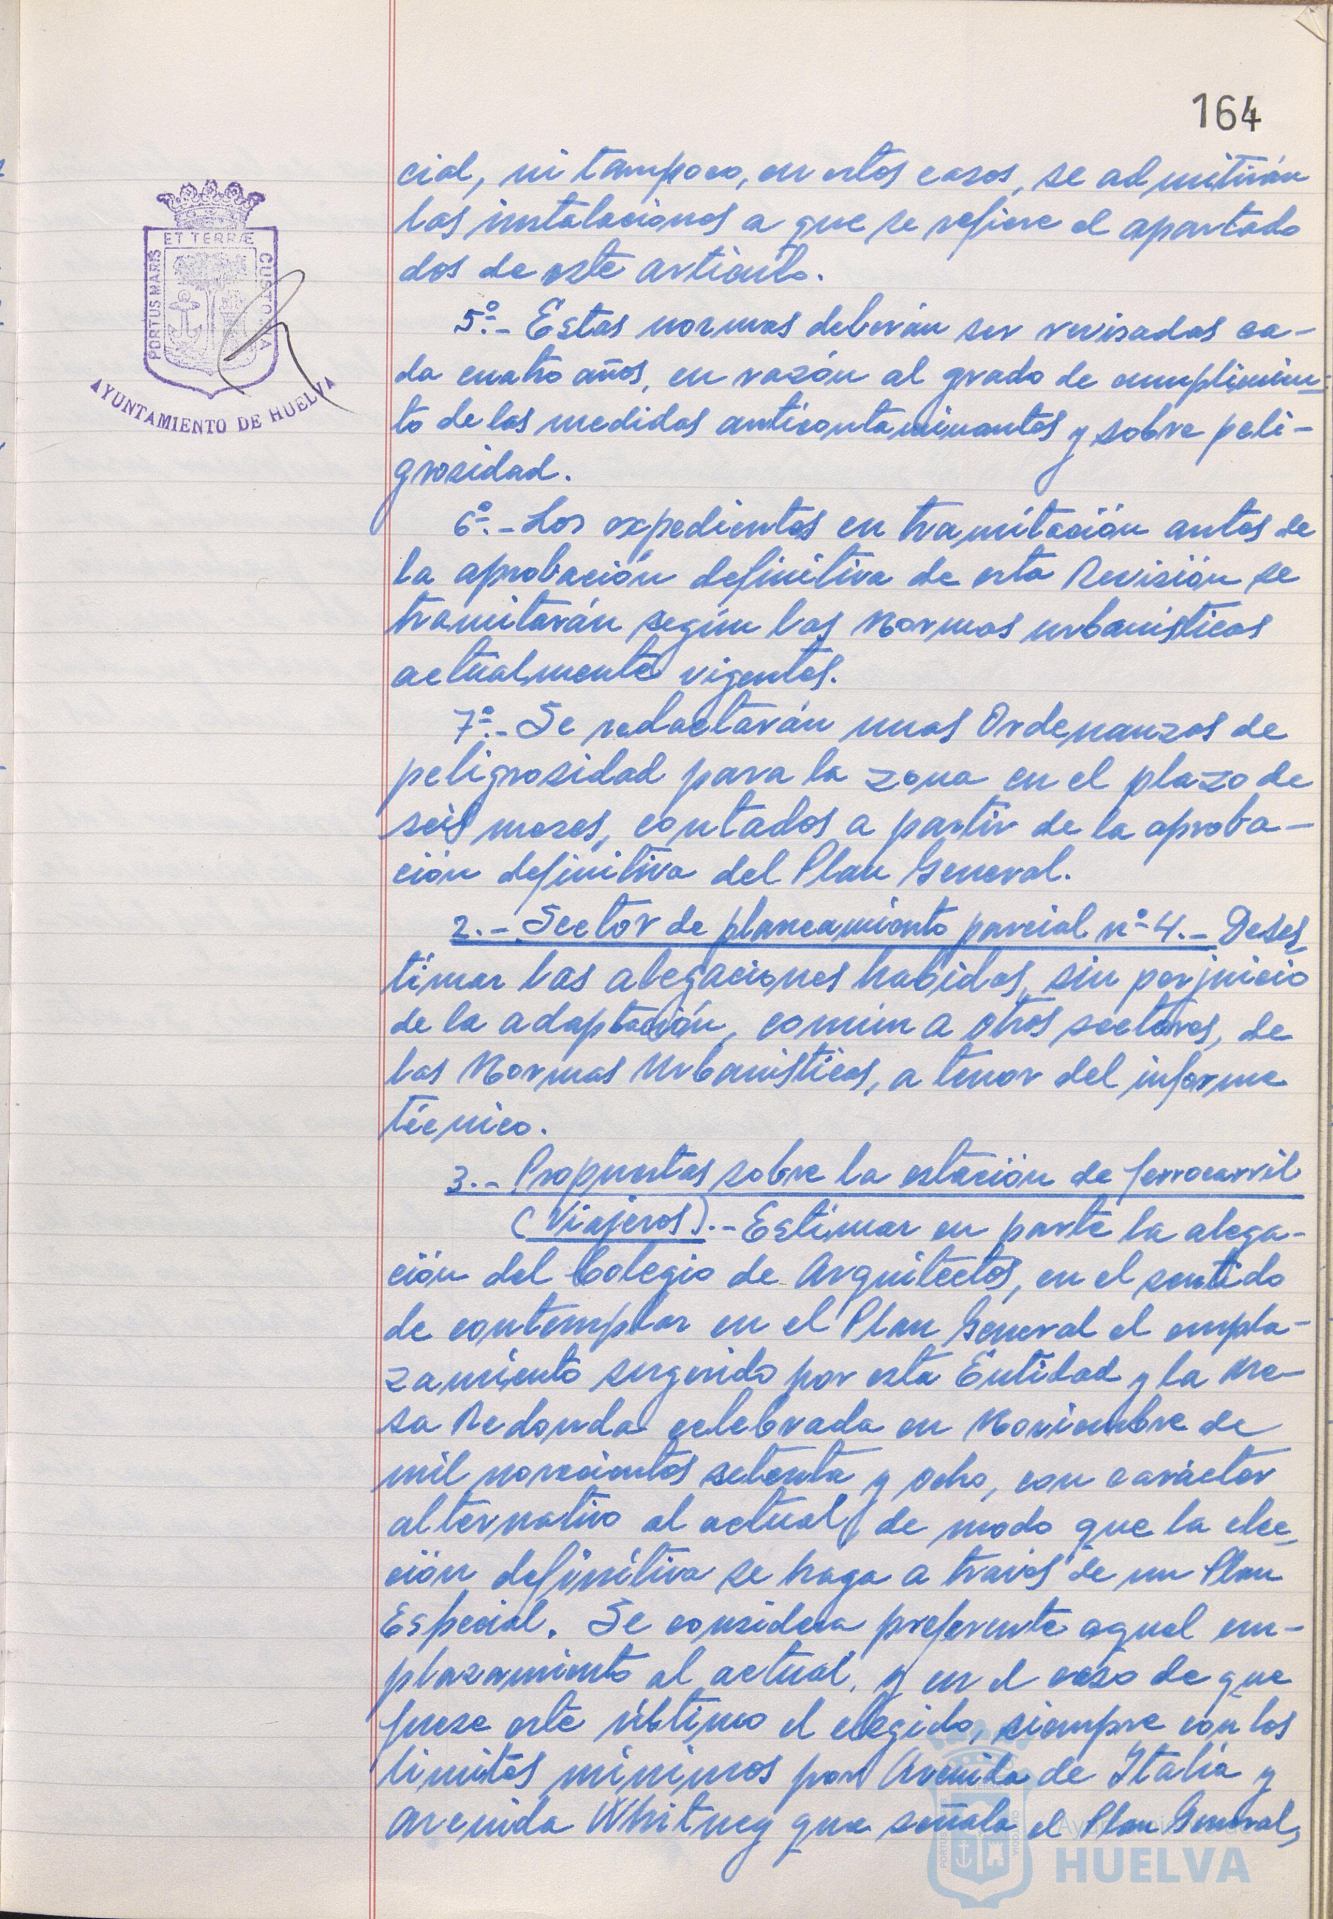 164
cial, ni tampoco, en estos casos, se admitirán
las instalaciones a que se refiere el apartado
dos de este artículo.
ET TERRÆ
PORTUS MARIS
CUSTODIA
AYUNTAMIENTO DE HUELVA
5º.- Estas normas deberán ser revisadas ca-
da cuatro años, en razón al grado de cumplimien-
to de las medidas anticontaminantes y sobre peli-
grosidad.
6º.- Los expedientes en tramitación antes de
la aprobación definitiva de esta Revisión se
tramitarán según las Normas urbanísticas
actualmente vigentes.
7º.- Se redactarán unas Ordenanzas de
peligrosidad para la zona en el plazo de
seis meses, contados a partir de la aproba-
ción definitiva del Plan General.
2.- Sector de planeamiento parcial nº 4.- Deses-
timar las alegaciones habidas, sin perjuicio
de la adaptación, común a otros sectores, de
las Normas Urbanísticas, a tenor del informe
técnico.
3.- Propuestas sobre la estación de ferrocarril
(Viajeros).- Estimar en parte la alega-
ción del Colegio de Arquitectos, en el sentido
de contemplar en el Plan General el empla-
zamiento sugerido por esta Entidad y la Me-
sa Redonda celebrada en Noviembre de
mil novecientos setenta y ocho, con carácter
alternativo al actual, de modo que la elec-
ción definitiva se haga a través de un Plan
Especial. Se considera preferente aquel em-
plazamiento al actual, y en el caso de que
fuese este último el elegido, siempre con los
límites mínimos por Avenida de Italia y
Avenida Whitney que señala el Plan General,
Ayuntamiento de
HUELVA